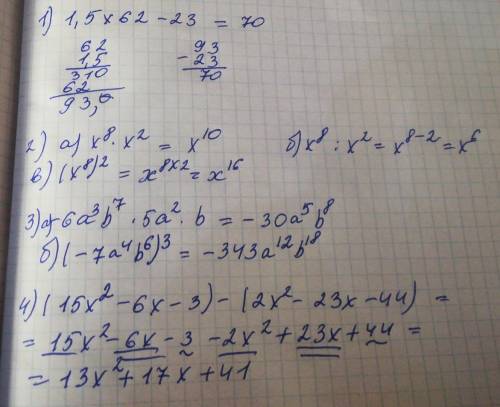 1) 1,5x62-23 = 70
62 93
1,5 - 23
310 70
62
93,0
2) а) x⁸ · x² = x¹⁰ б) x⁸ : x² = x⁸⁻² = x⁶
в) (x⁸)² = x⁸ˣ² = x¹⁶
3) а) -6a³b⁷ · 5a² · b = -30a⁵b⁸
б) (-7a⁴b⁶)³ = -343a¹²b¹⁸
4) (15x² - 6x - 3) - (2x² - 23x - 44) =
= 15x² - 6x - 3 - 2x² + 23x + 44 =
= 13x² + 17x + 41